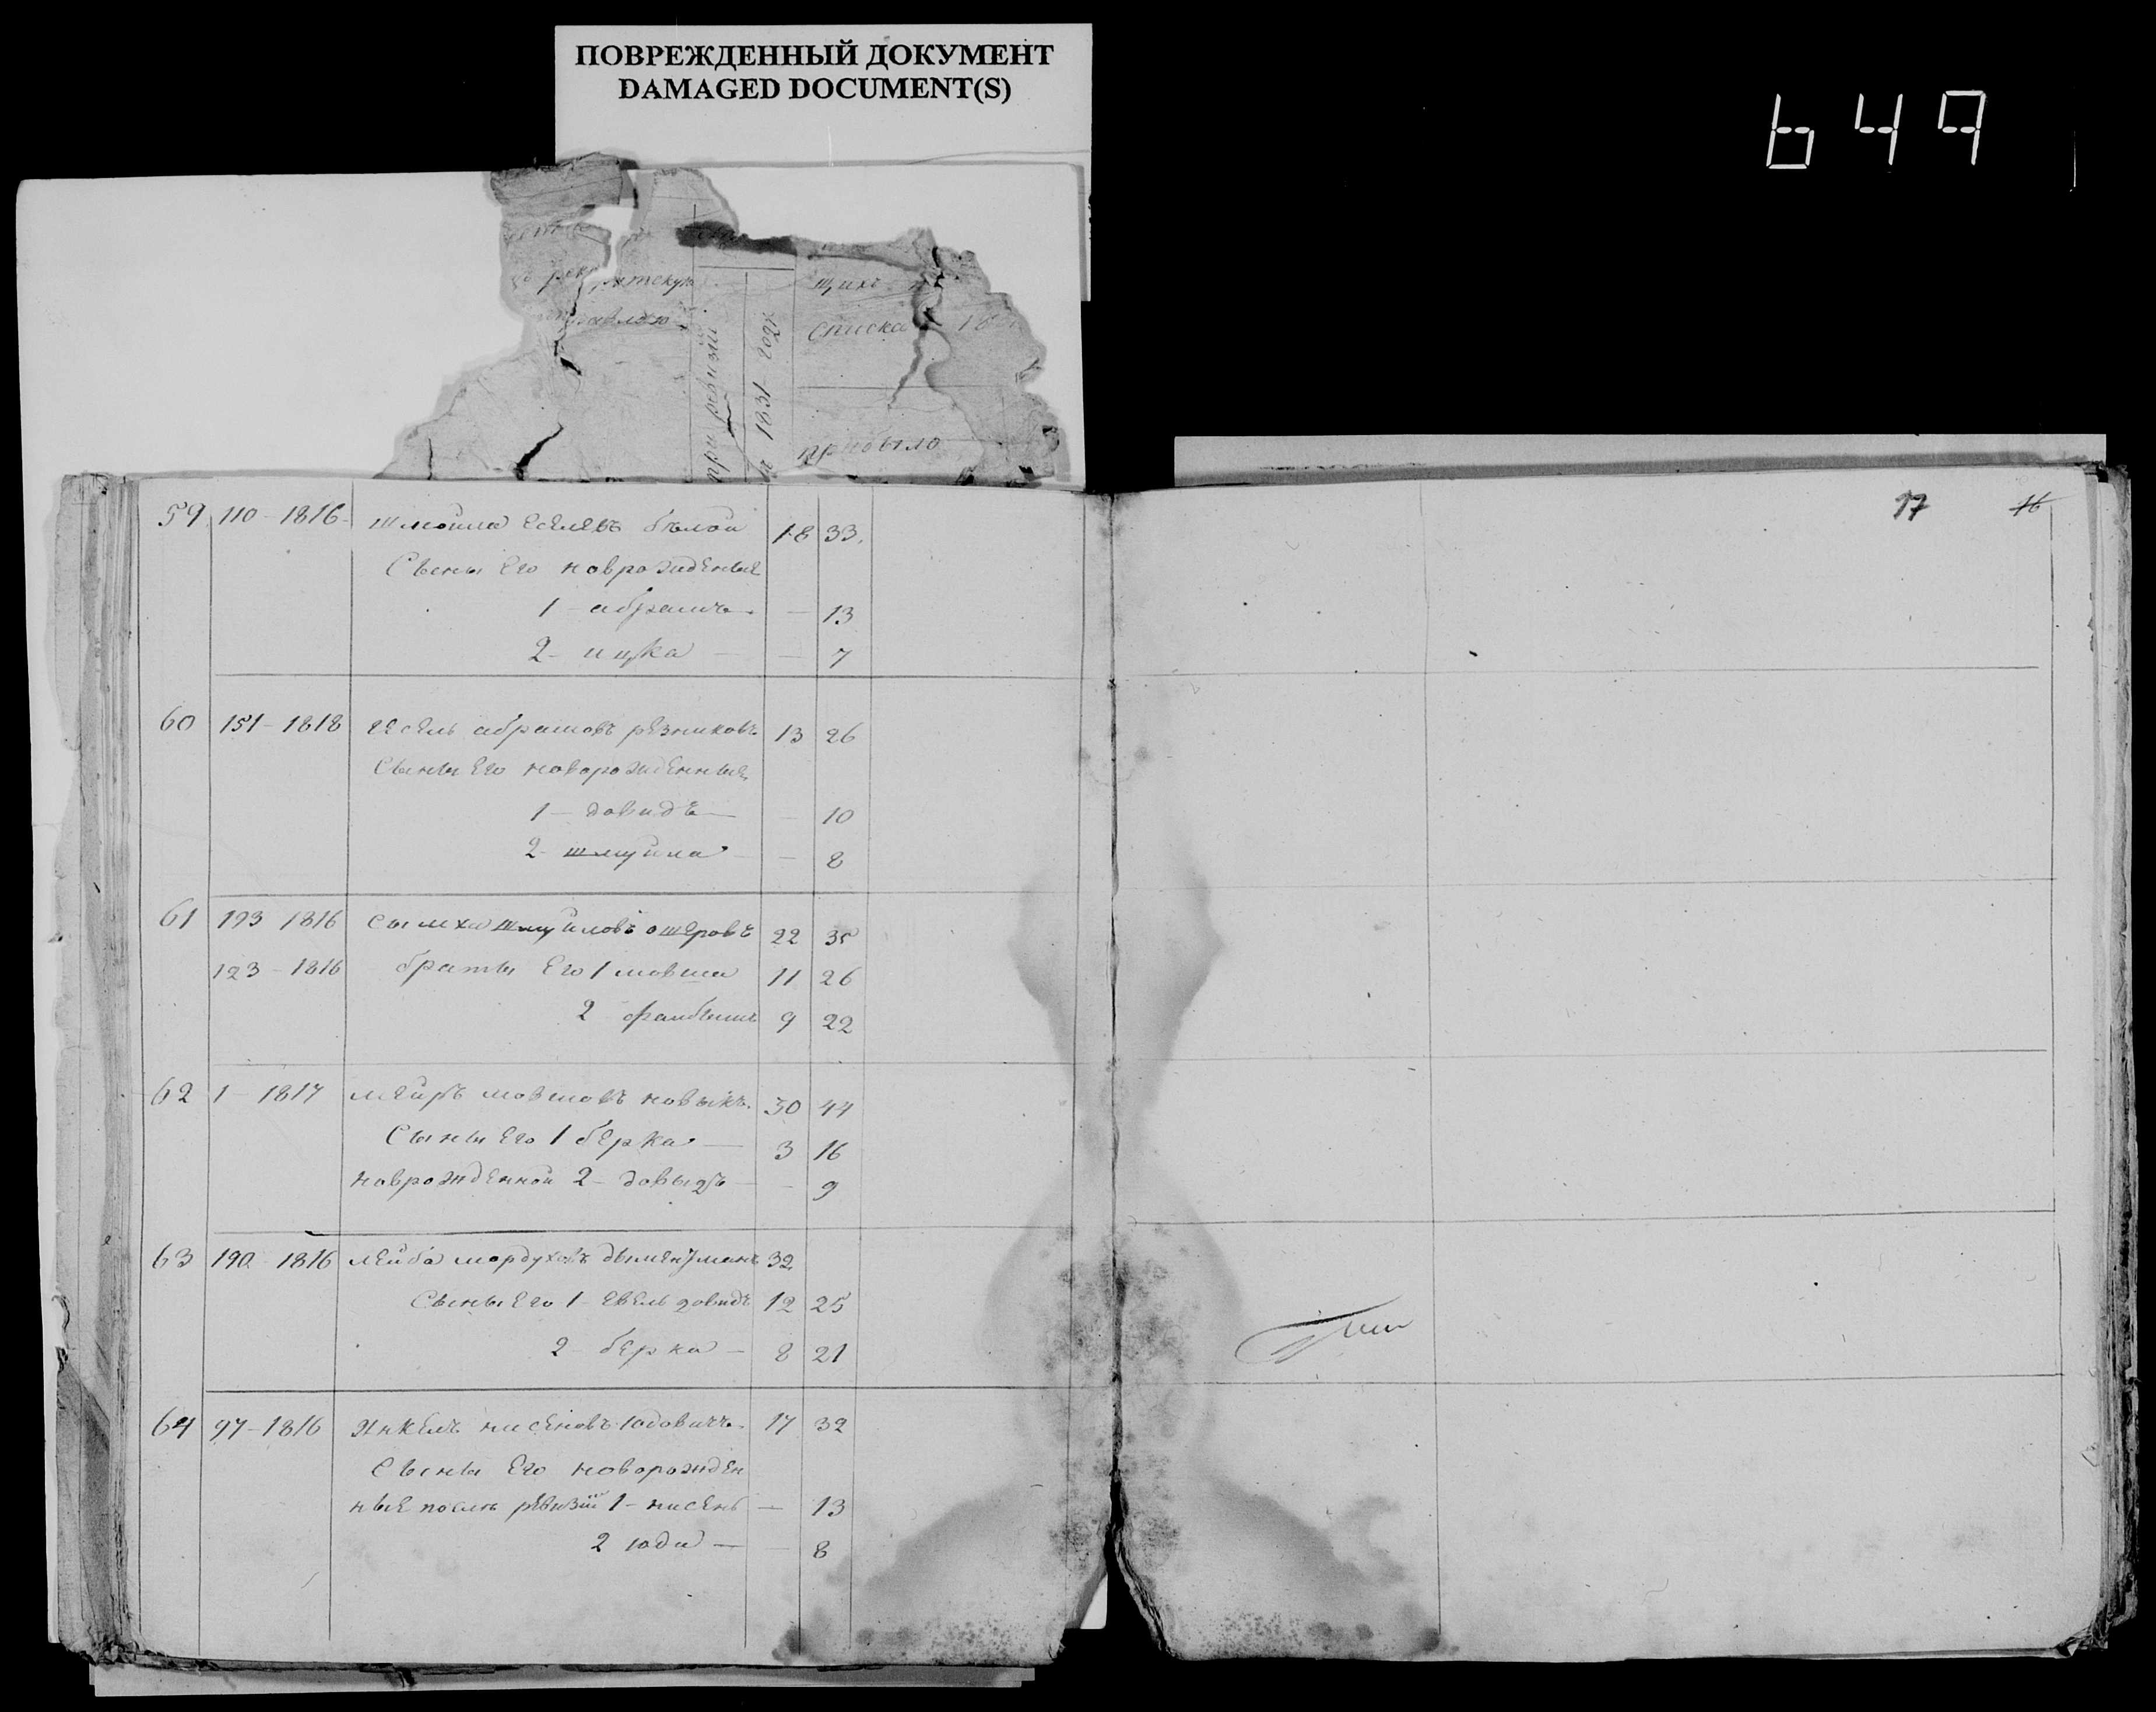 ПОВРЕЖДЕННЫЙ ДОКУМЕНТ
DAMAGED DOCUMENT(S)
649
при ревизіи
1831 года
щихъ
списка
прибыло
17 16
59 110 - 1816 шмойла еселевъ бѣлой 18 33
Сыны Его наврожденые
1 - абрамъ - 13
2 - ицка - 7
60 151 - 1818 іесель абрамовъ резниковъ 13 26
Сыны Его новорожденныя
1 - довидъ - 10
2 - шмуйла - 8
61 123 1816 сымха шмуйловъ ошеровъ 22 35
123 - 1816 браты Его 1 мовша 11 26
2 9 22
62 1 - 1817 меиръ мовшовъ новыкъ 30 44
Сыны Его 1 берка 3 16
наврожденной 2 - довыдъ - 9
63 190 - 1816 лейба мордуховъ дыментманъ 32
Сыны Его 1 - евель довидъ 12 25
2 - берка - 8 21
64 97 - 1816 Янкель нисеновъ юдовичъ 17 32
Сыны Его новорожден
ные послѣ ревизіи 1 - нисенъ - 13
2 юда - 8